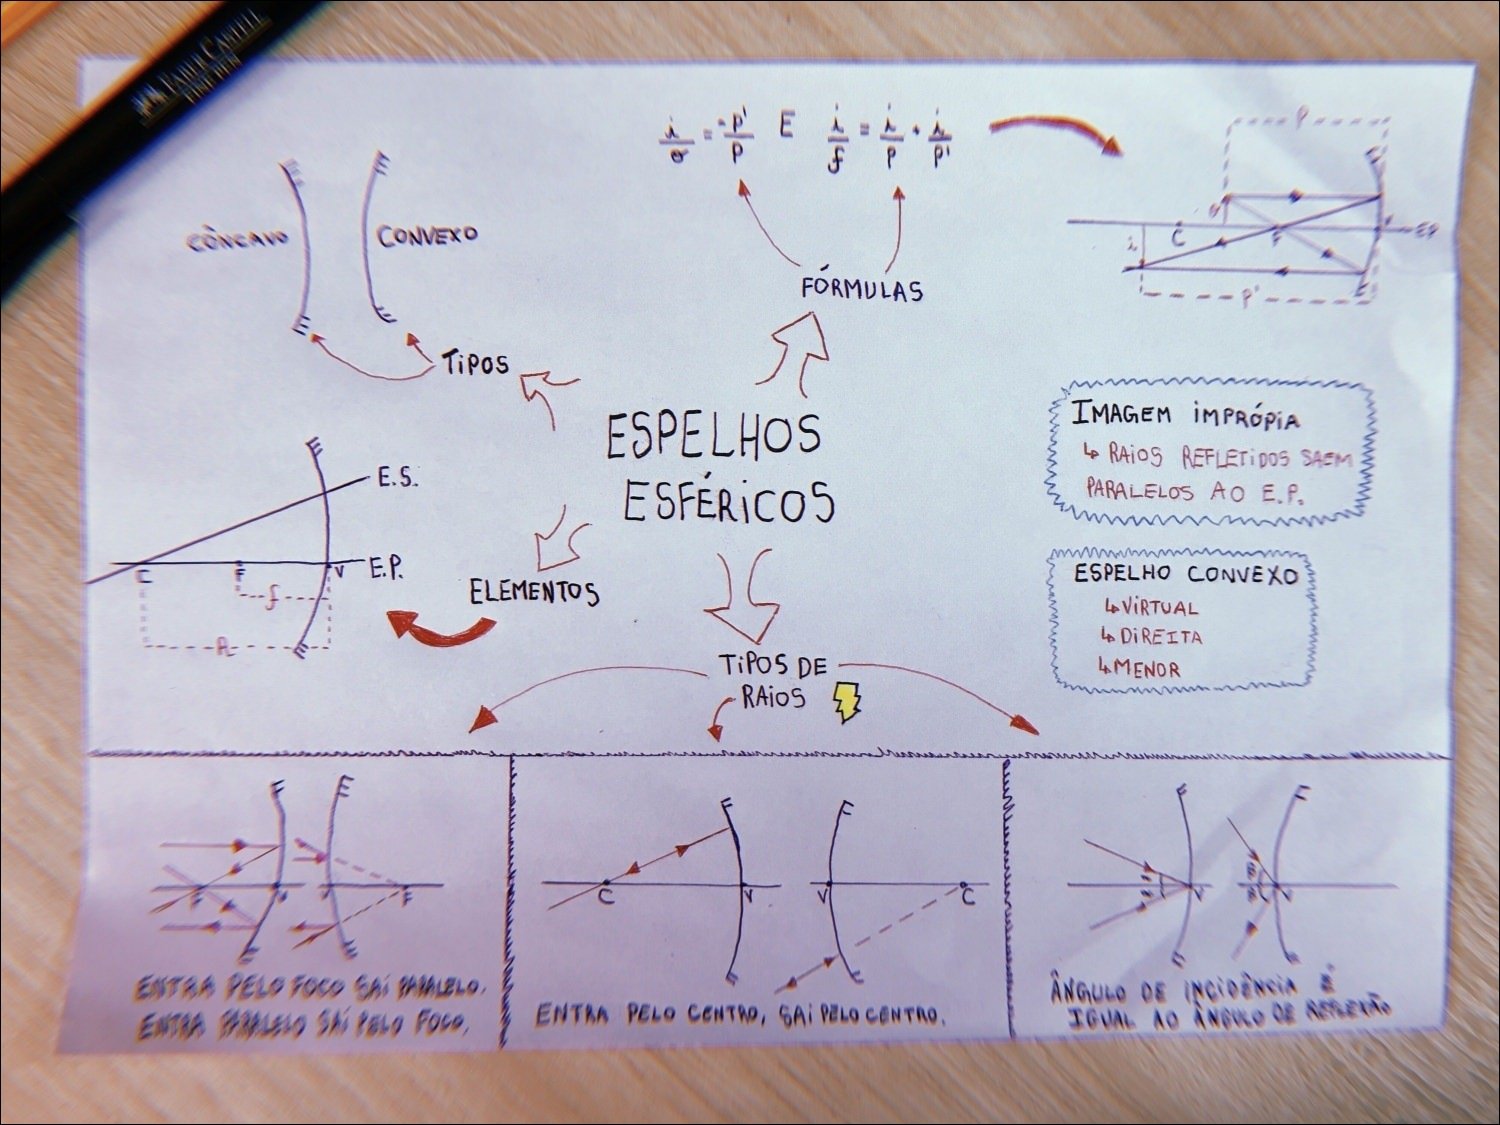 FABER CASTELL
i/o = -p'/p E i/f = i/p + i/p'
P
CÔNCAVO
CONVEXO
o
C
F
V
E.P.
i
P'
FÓRMULAS
TIPOS
ESPELHOS
ESFÉRICOS
IMAGEM IMPRÓPIA
↳ RAIOS REFLETIDOS SAEM
PARALELOS AO E.P.
E.S.
C
F
V
E.P.
f
R
ELEMENTOS
ESPELHO CONVEXO
↳ VIRTUAL
↳ DIREITA
↳ MENOR
TIPOS DE
RAIOS
F
V
F
ENTRA PELO FOCO SAÍ PARALELO.
ENTRA PARALELO SAÍ PELO FOCO.
C
V
V
C
ENTRA PELO CENTRO, SAÍ PELO CENTRO.
V
V
ÂNGULO DE INCIDÊNCIA É
IGUAL AO ÂNGULO DE REFLEXÃO